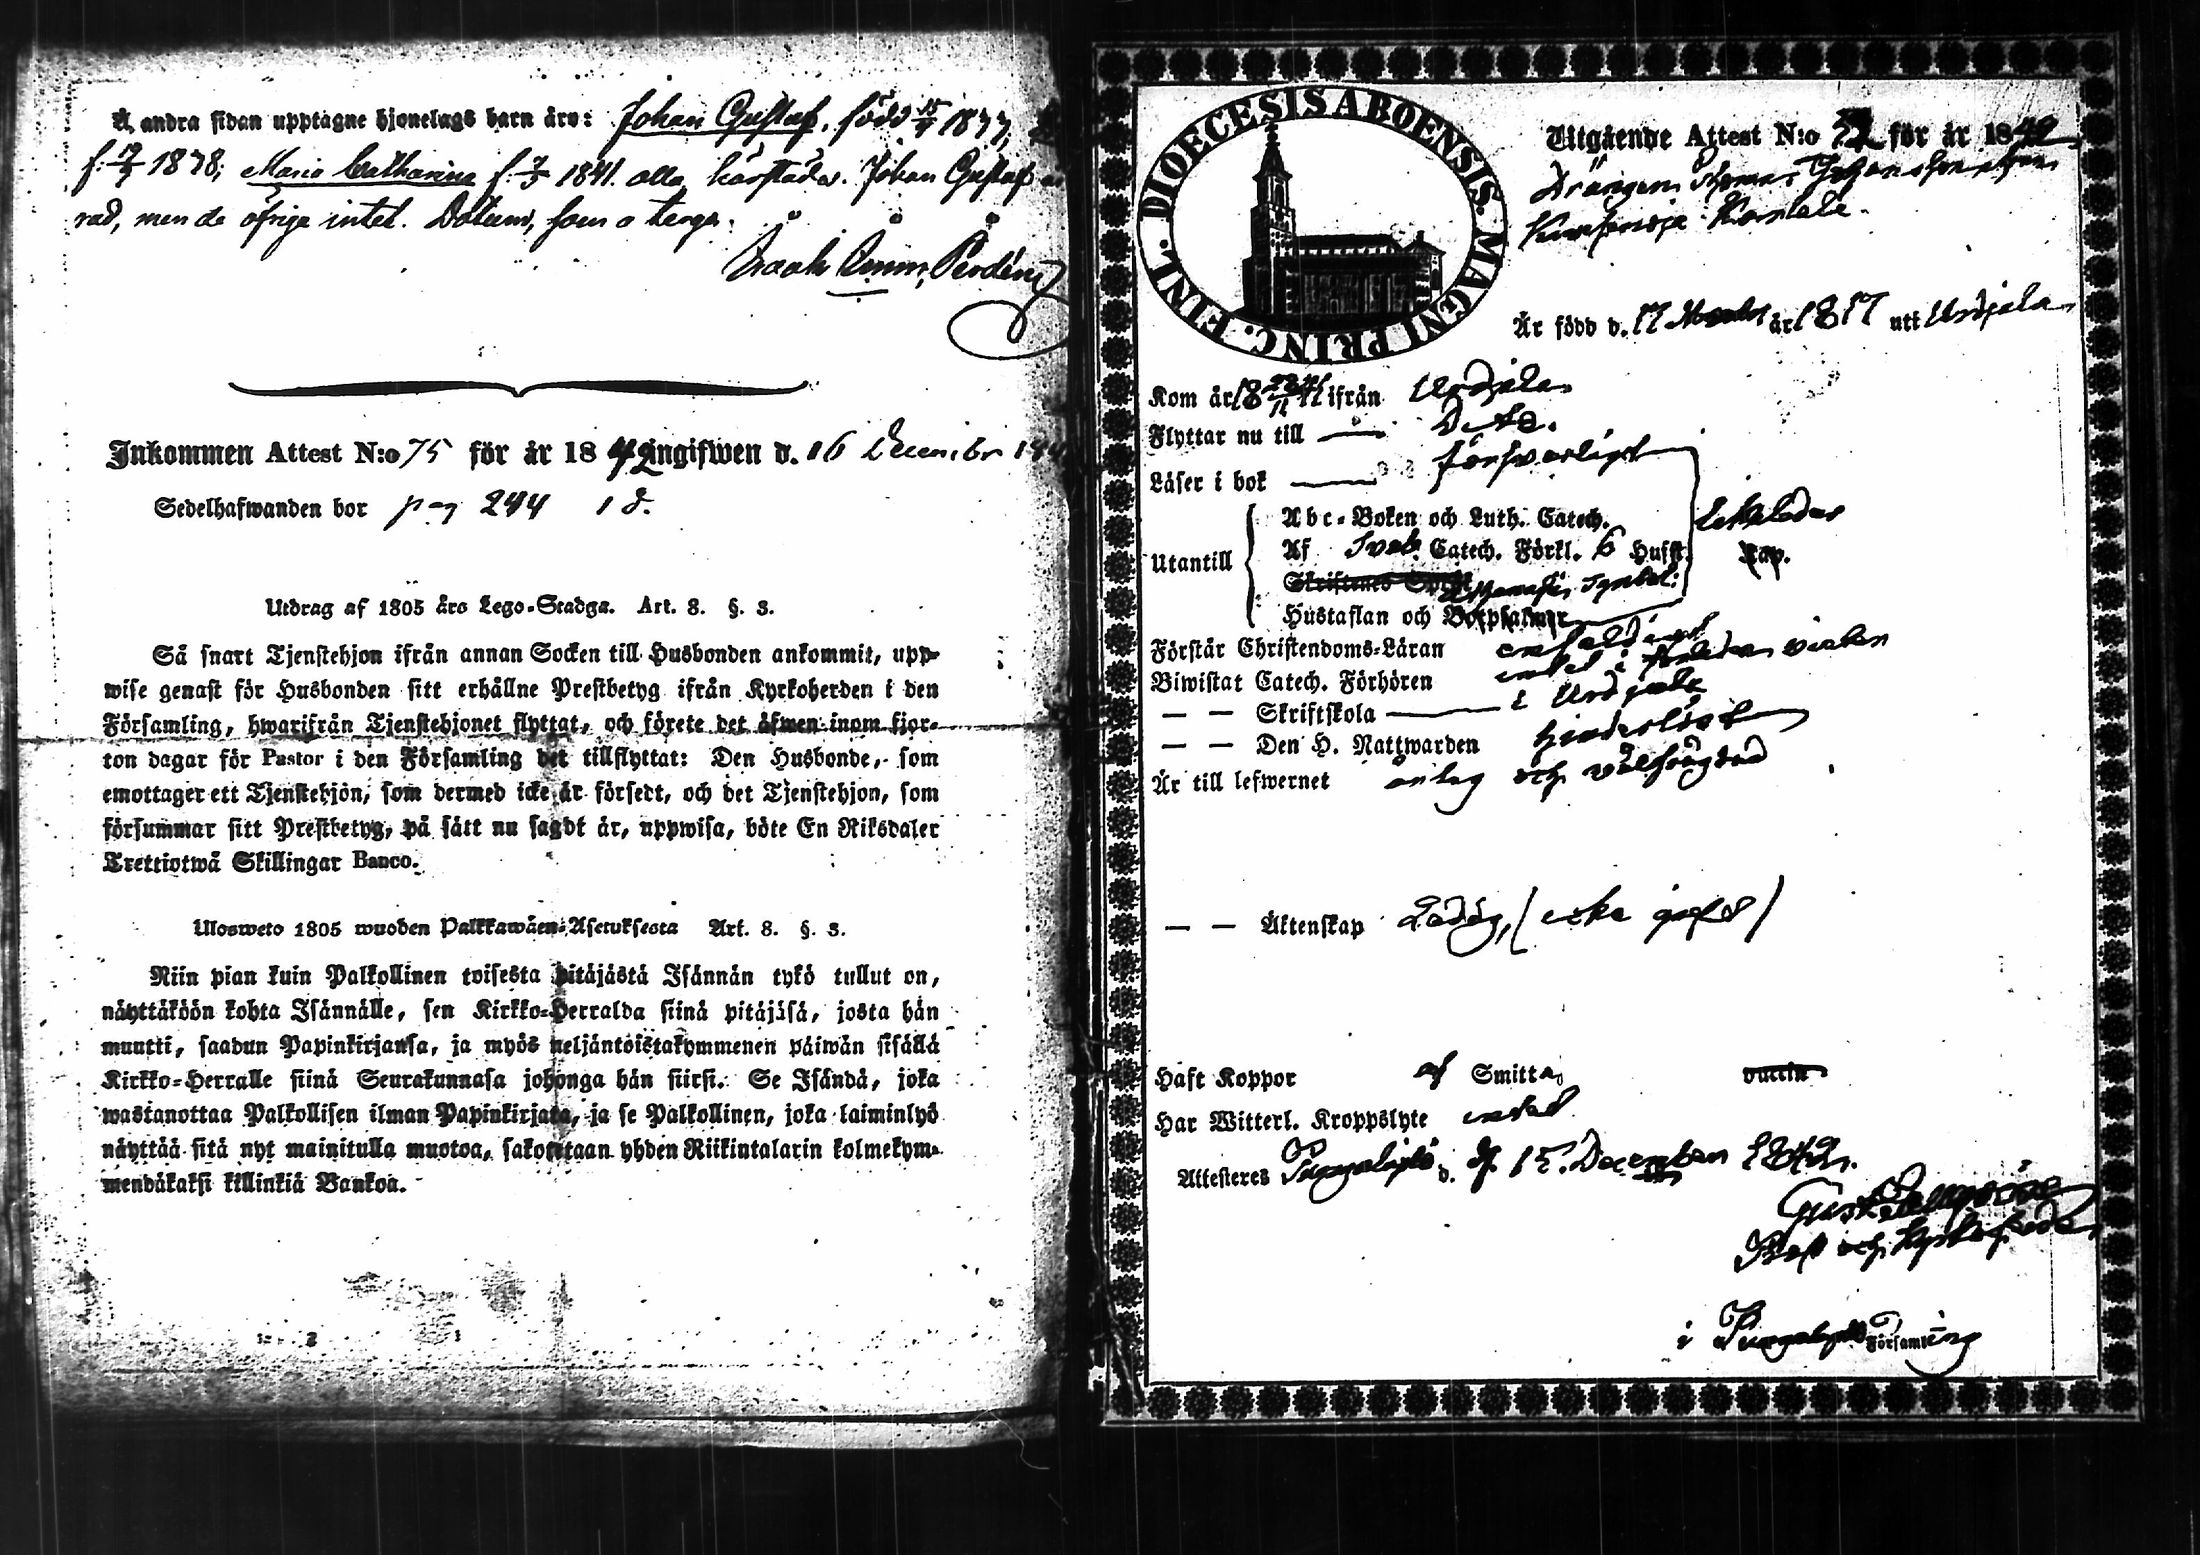 Å andra sidan upptagne hjonelags barn äro: Johan Gustaf, född 15/4 1837,
f. 19/9 1838; Maria Catharina f. 7/5 1841. alla härstädes. Johan Gustaf
rad, men de öfrige intet. Datum, som a tergo.
Inkommen Attest N:o 75 för år 1842 ingifwen d. 16 December
Sedelhafwanden bor pag 244
Utdrag af 1805 års Lego-Stadga. Art. 8. §. 3.
Så snart Tjenstehjon ifrån annan Socken till Husbonden ankommit, upp-
wise genast för Husbonden sitt erhållne Prestbetyg ifrån Kyrkoherden i den
Församling, hwarifrån Tjenstehjonet flyttat, och förete det äfwen inom fjor-
ton dagar för Pastor i den Församling det tillflyttat: Den Husbonde, som
emottager ett Tjenstehjon, som dermed icke är försedt, och det Tjenstehjon, som
försummar sitt Prestbetyg, på sätt nu sagdt är, uppwisa, böte En Riksdaler
Trettiotwå Skillingar Banco.
Ulosweto 1805 wuoden Palkkawäen-Asetuksesta Art. 8. §. 3.
Niin pian kuin Palkollinen toisesta pitäjästä Isännän tykö tullut on,
näyttäköön kohta Isännälle, sen Kirkko-Herralda siinä pitäjäsä, josta hän
muutti, saadun Papinkirjansa, ja myös neljäntoistakymmenen päiwän sisällä
Kirkko-Herralle siinä Seurakunnasa johonga hän siirsi. Se Isändä, joka
wastanottaa Palkollisen ilman Papinkirjata, ja se Palkollinen, joka laiminlyö
näyttää sitä nyt mainitulla muotoa, sakotetaan yhden Riikintalarin kolmekym-
mendäkaksi killinkiä Bankoa.
FINL. DIOECESIS ABOENSIS. MAGNI PRINC.
Utgående Attest N:o 52 för år 1842
Drängen Thomas Johansson från
Är född d. 17 Martii år 1817 uti Urdjala
Kom år 18 22/11 41 ifrån Urdjala
Flyttar nu till D:o
Läser i bok försvarligt
Abc-Boken och Luth. Catech.
Utantill Af Sveb. Catech. Förkl. 6 Hufst. Kap.
Skriftenes Språk Athanasii Symbol:
Hustaflan och Botpsalmer
Förstår Christendoms-Läran enfaldigt
Biwistat Catech. Förhören
— — Skriftskola i Urdjala
— — Den H. Nattwarden hinderlöst
Är till lefwernet ärlig och välfrägdad
— — Äktenskap Ledig, (icke gift)
Haft Koppor af Smitta vaccin
Har Witterl. Kroppslyte
Attesteres Pungalaitio d. 15. December 1842.
Prost och Kyrkoherde
i Pungalaitio Församling